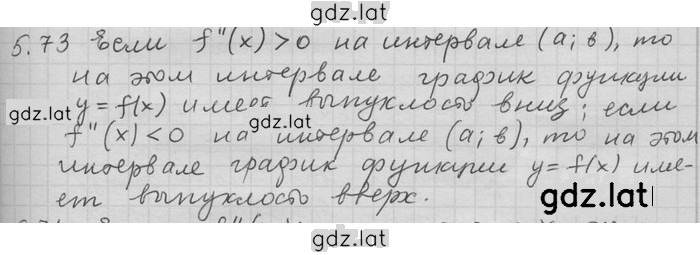 gdz.lat
5.73 Если f"(x)>0 на интервале (a; в), то
на этом интервале график функции
gdz.lat
y=f(x) имеет выпуклость вниз; если
gdz.lat
f"(x)<0 на интервале (a; в), то на этом
интервале график функции y=f(x) име-
ет выпуклость вверх.
gdz.lat
gdz.lat